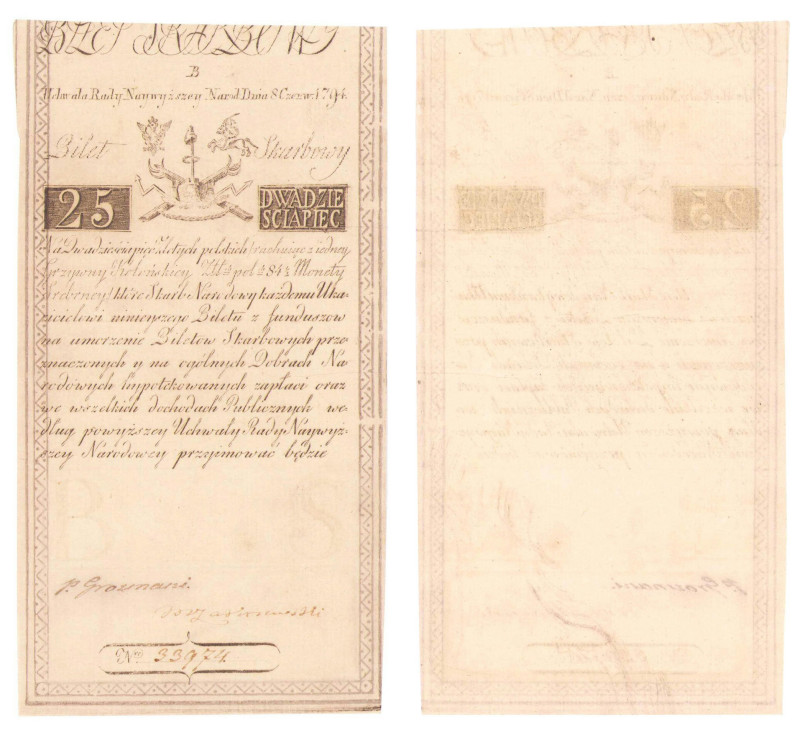 BILET SKARBOWY
B
Uchwała Rady Naywyższey Narod: Dnia 8 Czerw: 1794.
Bilet Skarbowy
25 DWADZIE
SCIAPIEC
Na Dwadzieściapięć Złotych polskich rachuiąc z iedney
Grzywny Kolońskiey Zł pol 84½ Monety
Srebrney, które Skarb Narodowy każdemu Uka-
zicielowi ninieyszego Biletu z funduszow
na umorzenie Biletow Skarbowych prze-
znaczonych y na ogólnych Dobrach Na-
rodowych hypotekowannych zapłaci oraz
we wszelkich dochodach Publicznych we-
dług powyższey Uchwały Rady Naywyż-
szey Narodowey przyimować będzie
B S
P. Grosmani.
Nro 33974.